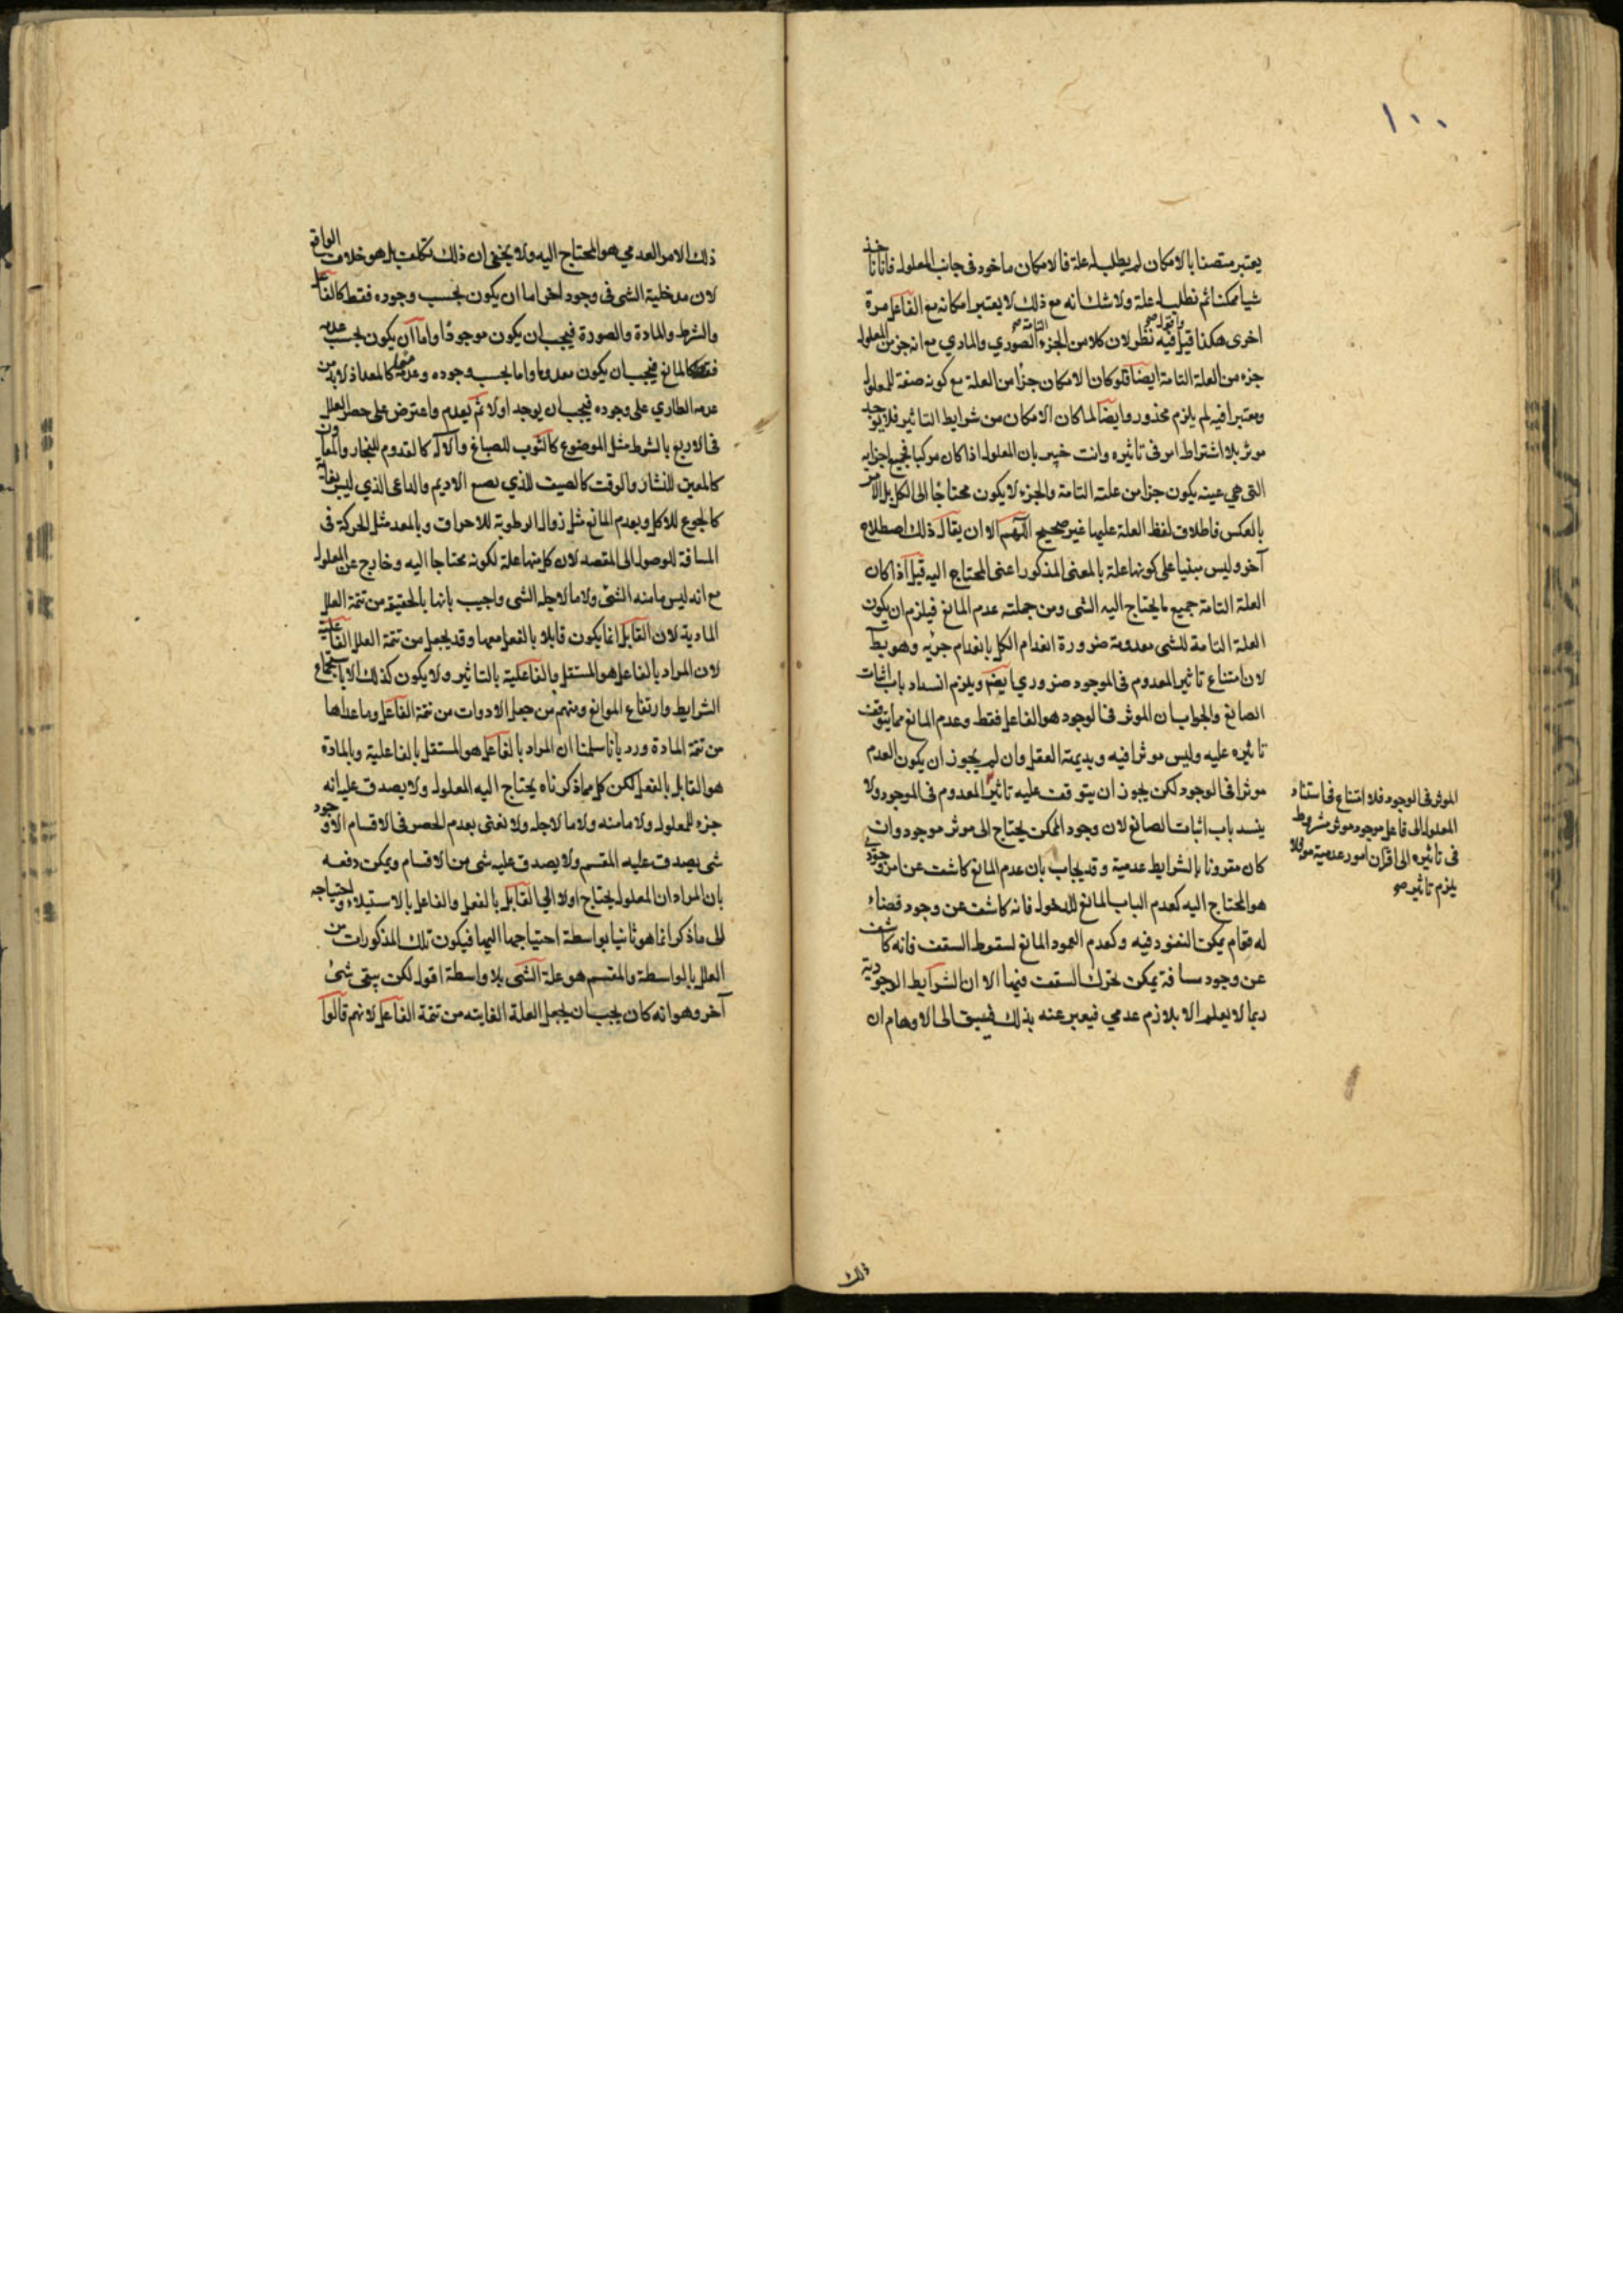 ١٠٠
يعتبر متصفا بالامكان لم يطلب له علة فالامكان ماخوذ فى جانب المعلول فانا ناخذ
شيأ ممكنا ثم نطلب له علة ولا شك انه مع ذلك لا يعتبر امكانه مع الفاعل مرة
اخرى هكذا قيل فيه نظر لان كلا من الجزء الصوري والمادي مع انه جزء من المعلول
جزء من العلة التامة ايضا فلو كان الامكان جزأ من العلة مع كونه صفة للمعلول
ومعتبرا فيه لم يلزم محذور وايضا لما كان الامكان من شرايط التاثير فلا يوجد
موثر بلا اشتراط امر فى تاثيره وانت خبير بان المعلول اذا كان مركبا فجميع اجزايه
التى هي عينه يكون جزا من علته التامة والجزء لا يكون محتاجا الى الكل بل الامر
بالعكس فاطلاق لفظ العلة عليها غير صحيح اللهم الا ان يقال ذلك اصطلاح
آخر وليس مبنيا على كونها علة بالمعنى المذكور اعنى المحتاج اليه قيل اذا كان
العلة التامة جميع ما يحتاج اليه الشى ومن جملته عدم المانع فيلزم ان يكون
العلة التامة للشى معدومة ضرورة انعدام الكل بانعدام جزئه وهو بط
لان امتناع تاثير المعدوم فى الموجود ضروري ايضا ويلزم انسداد باب اثبات
الصانع والجواب ان الموثر فى الوجود هو الفاعل فقط وعدم المانع مما يتوقف
تاثيره عليه وليس موثرا فيه وبديهة العقل وان لم يجوز ان يكون العدم
موثرا فى الوجود لكن يجوز ان يتوقف عليه تاثير المعدوم فى الموجود ولا
ينسد باب اثبات الصانع لان وجود الممكن يحتاج الى موثر موجود وان
كان مقرونا بالشرايط عدمية وقد يجاب بان عدم المانع كاشف عن امر وجودي
هو المحتاج اليه كعدم الباب المانع للدخول فانه كاشف عن وجود فضاء
له قوام يمكن النفوذ فيه وكعدم العمود المانع لسقوط السقف فانه كاشف
عن وجود مسافة يمكن تحرك السقف فيها الا ان الشرايط الوجودية
ربما لا يعلم الا بلازم عدمي فيعبر عنه بذلك فيسبق الى الاوهام ان
الموثر فى الوجود فلا امتناع فى استناد
المعلول الى فاعل موجود موثر مشروط
فى تاثيره الى اقران امور عدمية
يلزم تاثير صح
ذلك
ذلك الامر العدمي هو المحتاج اليه ولا يخفى ان ذلك تكلف بل هو خلاف الواقع
لان مدخلية الشى فى وجود آخر اما ان يكون بحسب وجوده فقط كالفاعل
والشرط والمادة والصورة فيجب ان يكون موجودا واما ان يكون بحسب عدمه
فقط كالمانع فيجب ان يكون معدوما واما بحسب وجوده وعدمه معا كالمعد اذ لا بد من
عدمه الطاري على وجوده فيجب ان يوجد اولا ثم يعدم واعترض على حصر العلل
فى الاربع بالشرط مثل الموضوع كالثوب للصباغ والآلة كالقدوم للنجار والمعاون
كالمعين للنشار والوقت كالصيف للذي يصبغ الاديم والداعى الذي ليس بغاية
كالجوع للاكل وبعدم المانع مثل زوال الرطوبة للاحراق وبالمعد مثل الحركة فى
المسافة للوصول الى المقصد لان كل منها علة لكونه محتاجا اليه وخارج عن المعلول
مع انه ليس ما منه الشى ولا ما لاجله الشى واجيب بانها بالحقيقة من تتمة العلل
المادية لان القابل انما يكون قابلا بالفعل معها وقد يجعل من تتمة العلل الفاعلية
لان المراد بالفاعل هو المستقل بالفاعلية بالتاثير ولا يكون كذلك الا باستجماع
الشرايط وارتفاع الموانع ومنهم من جعل الادوات من تتمة الفاعل وما عداها
من تتمة المادة ورد بانا سلمنا ان المراد بالفاعل هو المستقل بالفاعلية وبالمادة
هو القابل بالفعل لكن كل مما ذكرناه يحتاج اليه المعلول ولا يصدق عليه انه
جزء للمعلول ولا ما منه ولا ما لاجله ولا نعنى بعدم الحصر فى الاقسام الا وجود
شى يصدق عليه المقسم ولا يصدق عليه شى من الاقسام ويمكن دفعه
بان المراد ان المعلول يحتاج اولا الى القابل بالفعل والفاعل بالاستيلاء واحتياجه
الى ما ذكر انما هو ثانيا بواسطة احتياجهما اليها فيكون تلك المذكورات من
العلل بالواسطة والمقسم هو علة الشى بلا واسطة اقول لكن يبقى شئ
آخر وهو انه كان يجب ان يجعل العلة الغايته من تتمة الفاعل لانهم قالوا